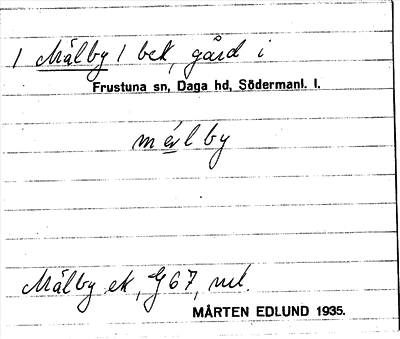 1 Mälby / bek, gård i
Frustuna sn, Daga hd, Södermanl. l.
mǽlby
Mälby ek, G67, ml.
MÅRTEN EDLUND 1935.